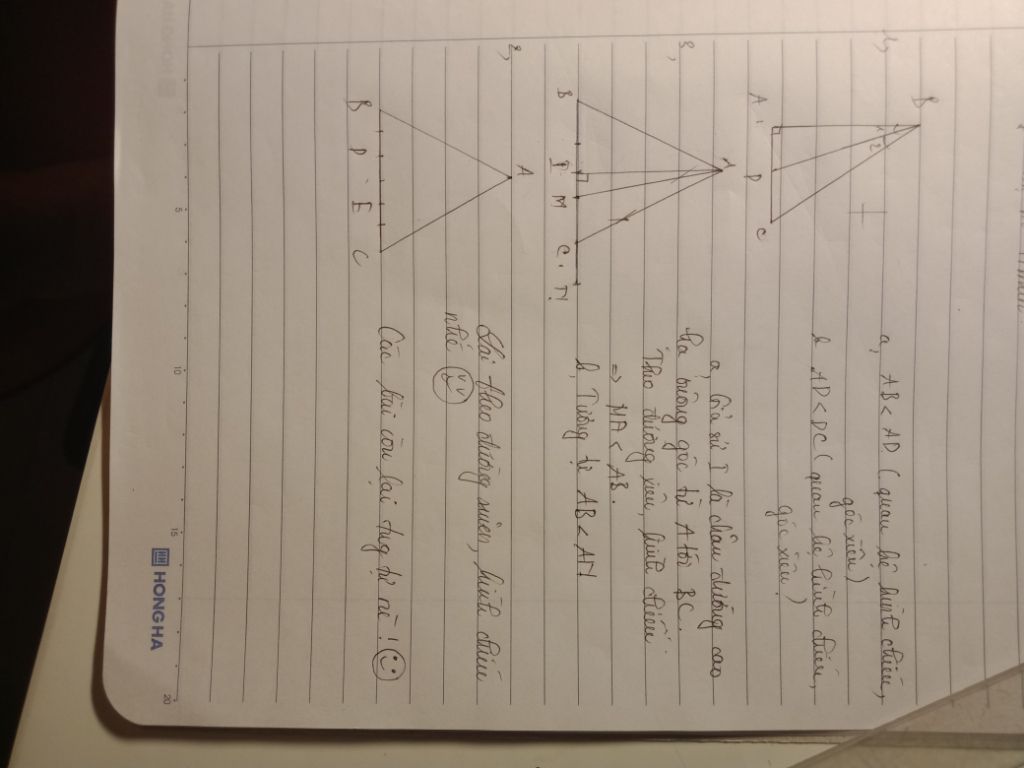 1,
B
1 2
A
D
C
a, AB < AD (quan hệ hình chiếu,
góc xiên)
b, AD < DC (quan hệ hình chiếu,
góc xiên)
3,
A
B
I
M
C
N
a, Giả sử I là chân đường cao
hạ vuông góc từ A tới BC.
Theo đường xiên, hình chiếu
=> MA < AB.
b, Tương tự AB < AN
2,
A
B
D
E
C
theo đường xiên, hình chiếu
nhé
Các bài còn lại tương tự ạ!
HONG HA
5
10
15
20